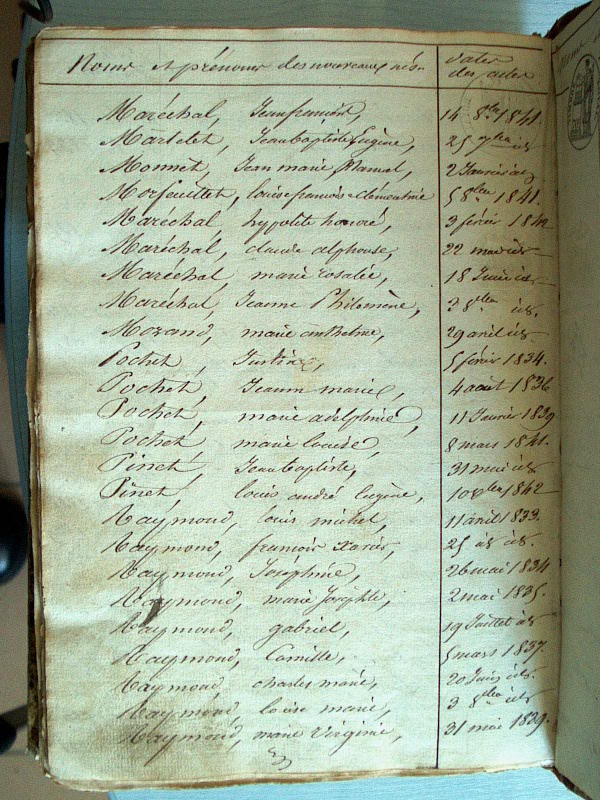 Noms et prénoms des nouveaux nés dates des actes
Maréchal, Jean françois, 14 8bre 1841
Martelet, Jean baptiste Eugène, 25 9bre id
Monnet, Jean marie 2 Janvier
Morfeuillet, louise françoise Clémentine 5 8bre 1841.
Maréchal, hypolite honoré, 3 févrir 1842
Maréchal, claude alphonse, 22 mai id
Maréchal, marie rosalie, 18 Juin id
Maréchal, Jeanne Philomène, 3 8bre id.
Morand, marie anthelme, 29 avril id
Pochet, Justine, 5 févrir 1834.
Pochet, Jeanne marie, 4 août 1836
Pochet, marie adelphine, 11 Janvier 1839
Pochet, marie 8 mars 1841.
Pinet, Jean baptiste, 31 mai id
Pinet, louis andré Eugène, 10 8bre 1842
Raymond, louis michel, 11 avril 1833.
Raymond, françois Xavier, 25 id id.
Raymond, Joséphine, 26 mai 1834
Raymond, marie Josephte, 2 mai 1835.
Raymond, gabriel, 19 Juillet id
Raymond, Camille, 5 mars 1837.
Raymond, charles marie, 20 Juin id.
Raymond, louise marie, 3 8bre id
Raymond, marie Virginie, 31 mai 1839.